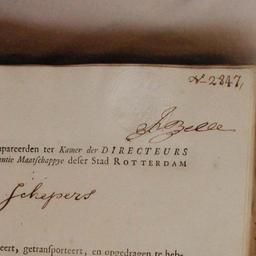 N 2847,
mpareerden ter Kamer der DIRECTEURS
antie Maatschappye deser Stad ROTTERDAM
Schepers
eert, getransporteert, en opgedragen te heb-